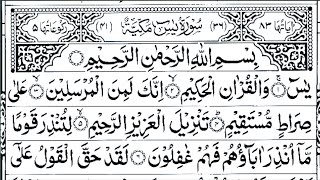 اٰيَاتُهَا ٨٣ (٣٦) سُوْرَةُ يٰسٓ مَكِّيَّةٌ (٤١) رُكُوْعَاتُهَا ٥
بِسْمِ اللّٰهِ الرَّحْمٰنِ الرَّحِيْمِ
يٰسٓ ۚ وَالْقُرْاٰنِ الْحَكِيْمِ ۙ اِنَّكَ لَمِنَ الْمُرْسَلِيْنَ ۙ عَلٰى
صِرَاطٍ مُّسْتَقِيْمٍ ؕ تَنْزِيْلَ الْعَزِيْزِ الرَّحِيْمِ ۙ لِتُنْذِرَ قَوْمًا
مَّاۤ اُنْذِرَ اٰبَآؤُهُمْ فَهُمْ غٰفِلُوْنَ لَقَدْ حَقَّ الْقَوْلُ عَلٰٓى